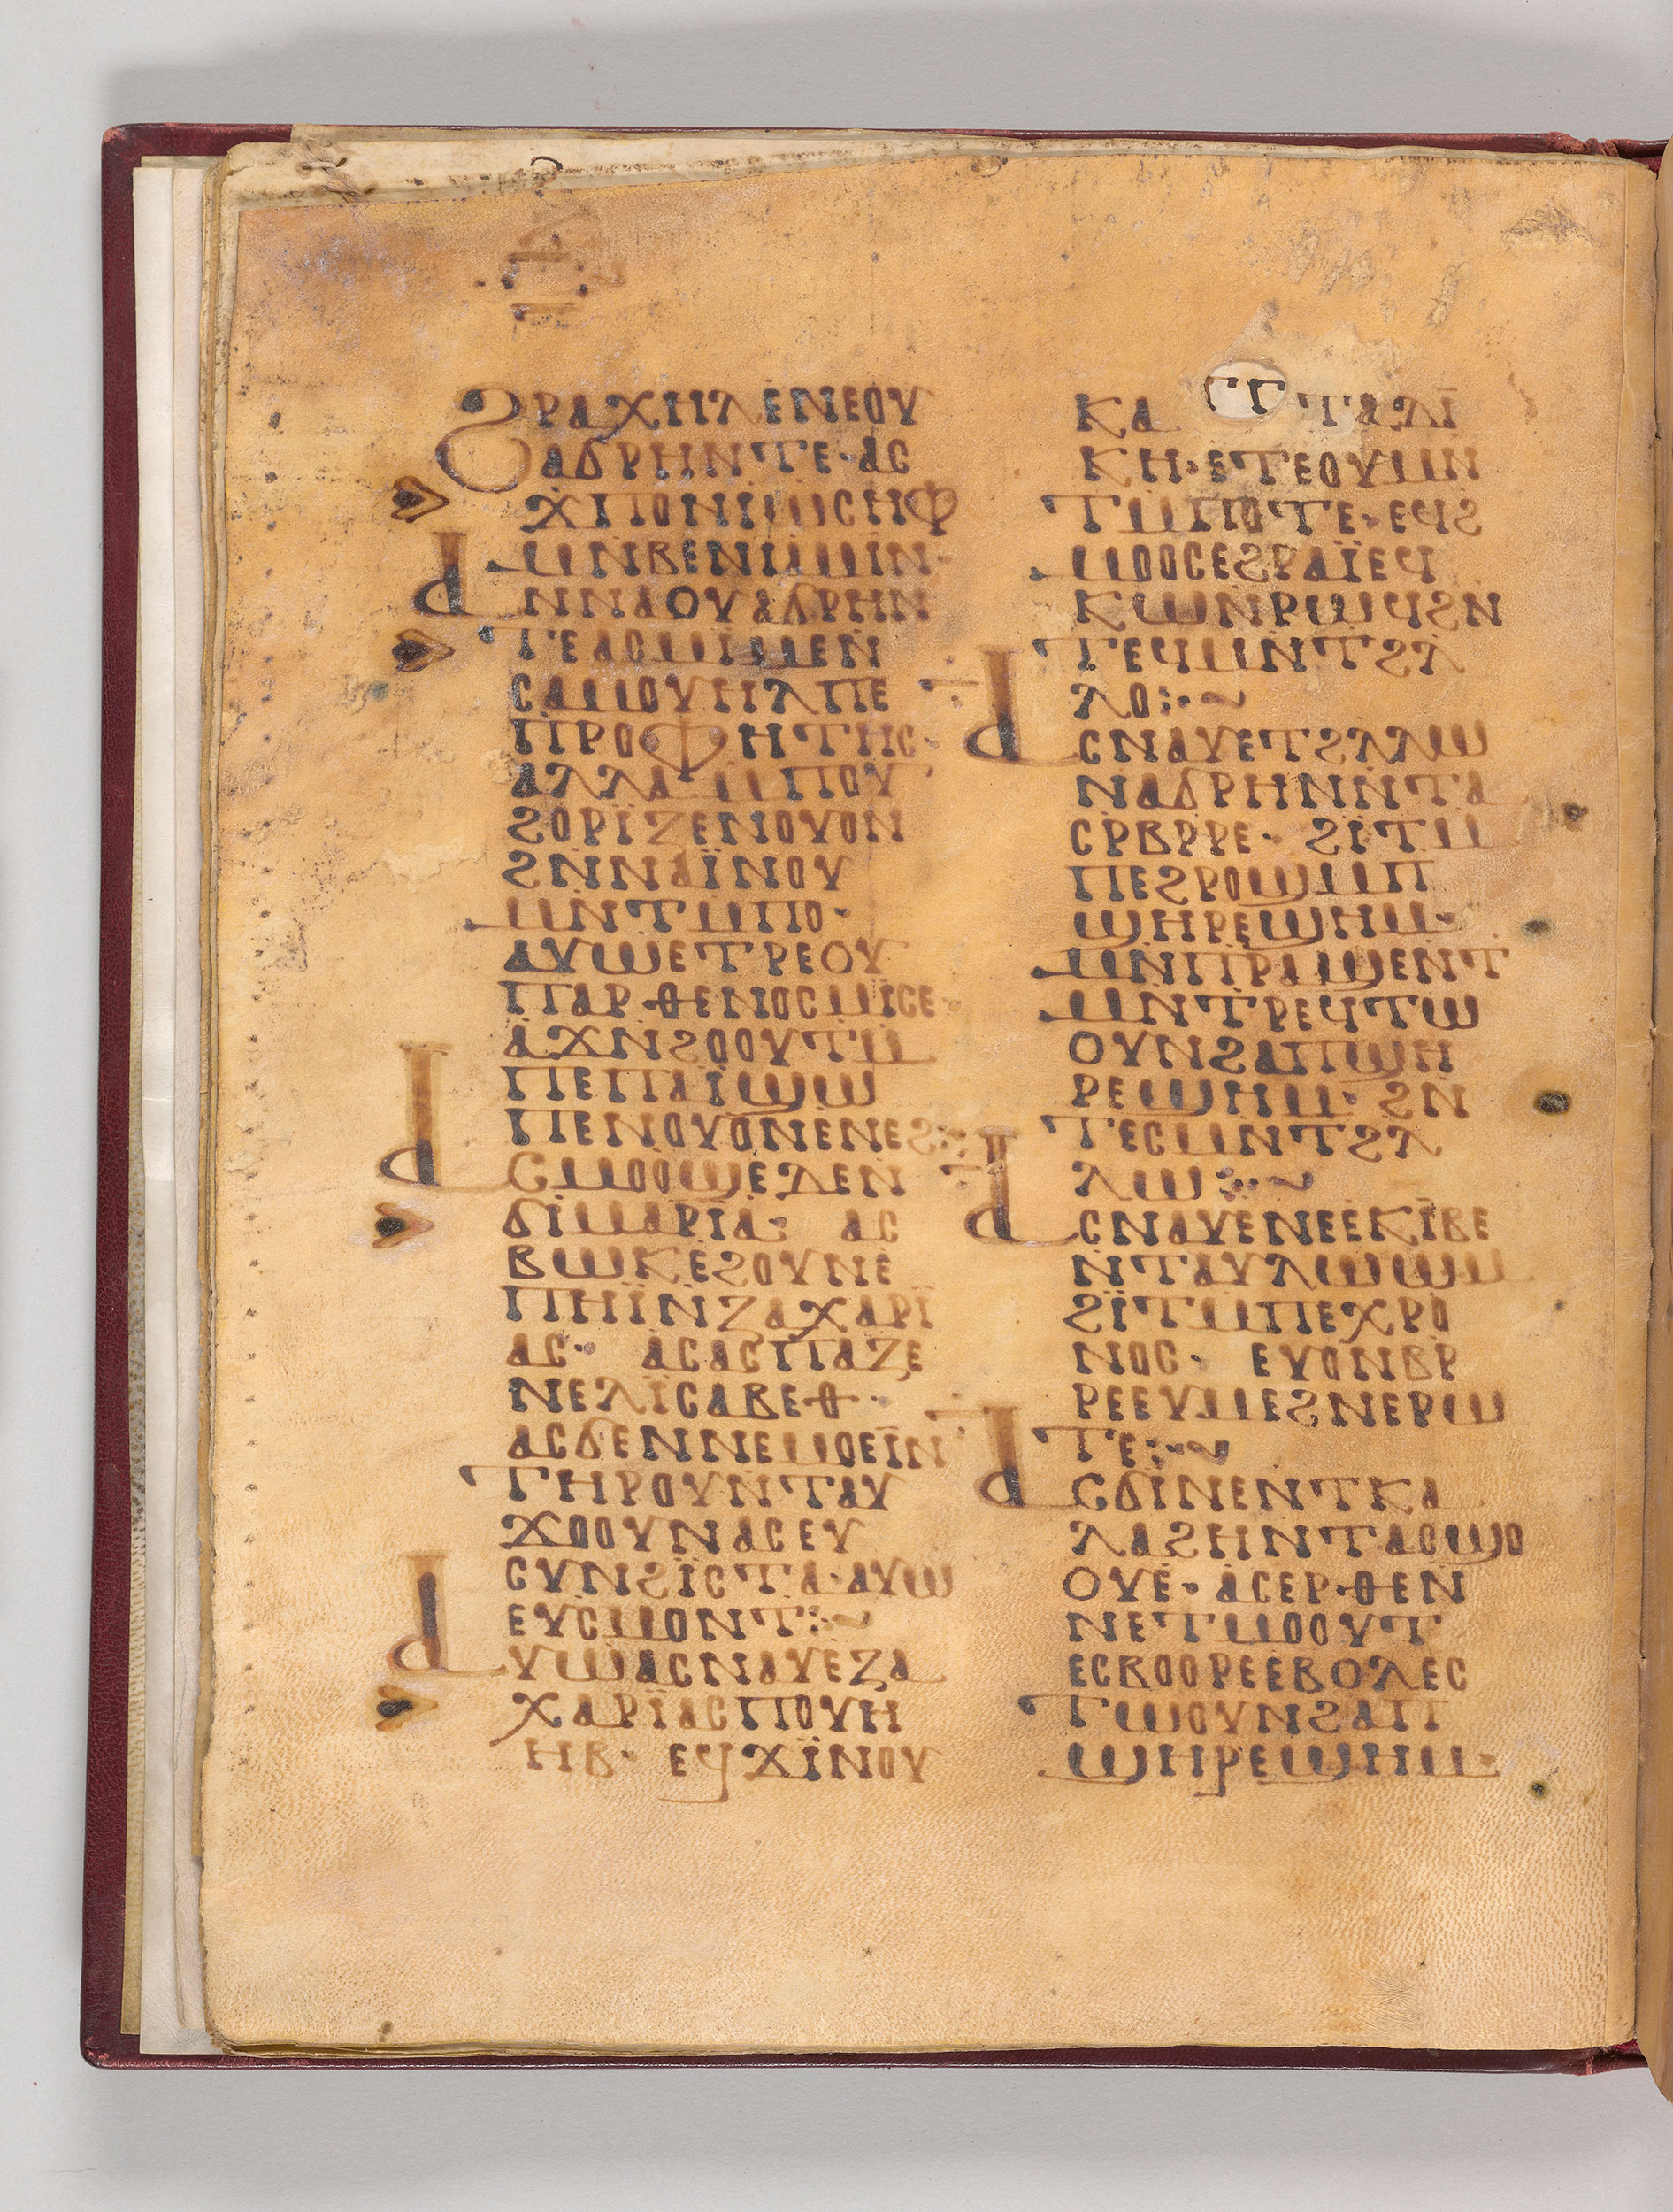 ϨⲢⲀⲬⲎⲖⲈⲚⲈⲞⲨ
ⲀϬⲢⲎⲚⲦⲈ· ⲀⲤ
ϪⲠⲞⲚⲒⲰⲤⲎⲪ
ⲘⲚⲂⲈⲚⲒⲀⲘⲒⲚ·
ⲀⲚⲚⲀⲞⲨⲀϬⲢⲎⲚ
ⲦⲈⲀⲤⲘⲒⲤⲈⲘⲈⲚ
ⲤⲀⲘⲞⲨⲎⲖⲠⲈ
ⲠⲢⲞⲪⲎⲦⲎⲤ·
ⲀⲖⲖⲀ ⲘⲠⲞⲨ
ϨⲞⲢⲒⲌⲈⲚⲞⲨⲞⲚ
ϨⲚⲚⲀⲒ̈ⲚⲞⲨ
ⲘⲚⲦⲘⲠⲞ·
ⲀⲨⲰⲈⲦⲢⲈⲞⲨ
ⲠⲀⲢⲐⲈⲚⲞⲤⲘⲒⲤⲈ·
ⲀϪⲚϨⲞⲞⲨⲦⲘ
ⲠⲈⲠⲀⲒ̈ϢⲰ
ⲠⲈⲚⲞⲨⲞⲚⲈⲚⲈϨ:~
ⲀⲤⲘⲞⲞϢⲈⲆⲈⲚ
ϬⲒⲘⲀⲢⲒⲀ· ⲀⲤ
ⲂⲰⲔⲈϨⲞⲨⲚⲈ
ⲠⲎⲒ̈ⲚⲌⲀⲬⲀⲢⲒ̈
ⲀⲤ· ⲀⲤⲀⲤⲠⲀⲌⲈ
ⲚⲈⲖⲒⲤⲀⲂⲈⲐ·
ⲀⲤϬⲈⲚⲚⲈⲘⲞⲈⲒⲚ
ⲦⲎⲢⲞⲨⲚⲦⲀⲨ
ϪⲞⲞⲨⲚⲀⲤⲈⲨ
ⲤⲨⲚϨⲒ̈ⲤⲦⲀ·ⲀⲨⲰ
ⲈⲨⲤⲘⲞⲚⲦ:~
ⲀⲨⲰⲀⲤⲚⲀⲨⲈⲌⲀ
ⲬⲀⲢⲒⲀⲤⲠⲞⲨⲎ
ⲎⲂ· ⲈϤϪⲒ̈ⲚⲞⲨ
ⲔⲀ ⲦⲀⲆⲒ
ⲔⲎ·ⲈⲦⲈⲞⲨⲘⲚ
ⲦⲘⲠⲞⲦⲈ·ⲈϤϨ
ⲘⲞⲞⲤⲈϨⲢⲀⲒ̈ⲈϤ
ⲔⲰⲚⲢⲰϤϨⲚ
ⲦⲈϤⲘⲚⲦϨⲖ
ⲖⲞ:·~
ⲀⲤⲚⲀⲨⲈⲦϨⲖⲖⲰ
ⲚⲀϬⲢⲎⲚⲚⲦⲀ
ⲤⲢⲂⲢⲢⲈ· ϨⲒⲦⲘ
ⲠⲈϨⲢⲞϢⲘⲠ
ϢⲎⲢⲈϢⲎⲘ·
ⲘⲚⲠⲢⲀϢⲈⲚⲦ
ⲘⲚⲦⲢⲈϤⲦⲰ
ⲞⲨⲚϨⲀⲠϢⲎ
ⲢⲈϢⲎⲘ· ϨⲚ
ⲦⲈⲤⲘⲚⲦϨⲖ
ⲖⲰ:·~
ⲀⲤⲚⲀⲨⲈⲚⲈⲈⲔⲒⲂⲈ
ⲚⲦⲀⲨⲖⲰⲰⲘ
ϨⲒ̈ⲦⲘⲠⲈⲬⲢⲞ
ⲚⲞⲤ· ⲈⲨⲞⲚⲂⲢ
ⲢⲈⲈⲨⲘⲈϨⲚⲈⲢⲰ
ⲦⲈ:·~
ⲀⲤϬⲒⲚⲈⲚⲦⲔⲀ
ⲖⲀϨⲎⲚⲦⲀⲤϢⲞ
ⲞⲨⲈ·ⲀⲤⲈⲢⲐⲈⲚ
ⲚⲈⲦⲘⲞⲞⲨⲦ
ⲈⲤⲂⲞⲞⲢⲈⲈⲂⲞⲖⲈⲤ
ⲦⲰⲞⲨⲚϨⲀⲠ
ϢⲎⲢⲈϢⲎⲘ·